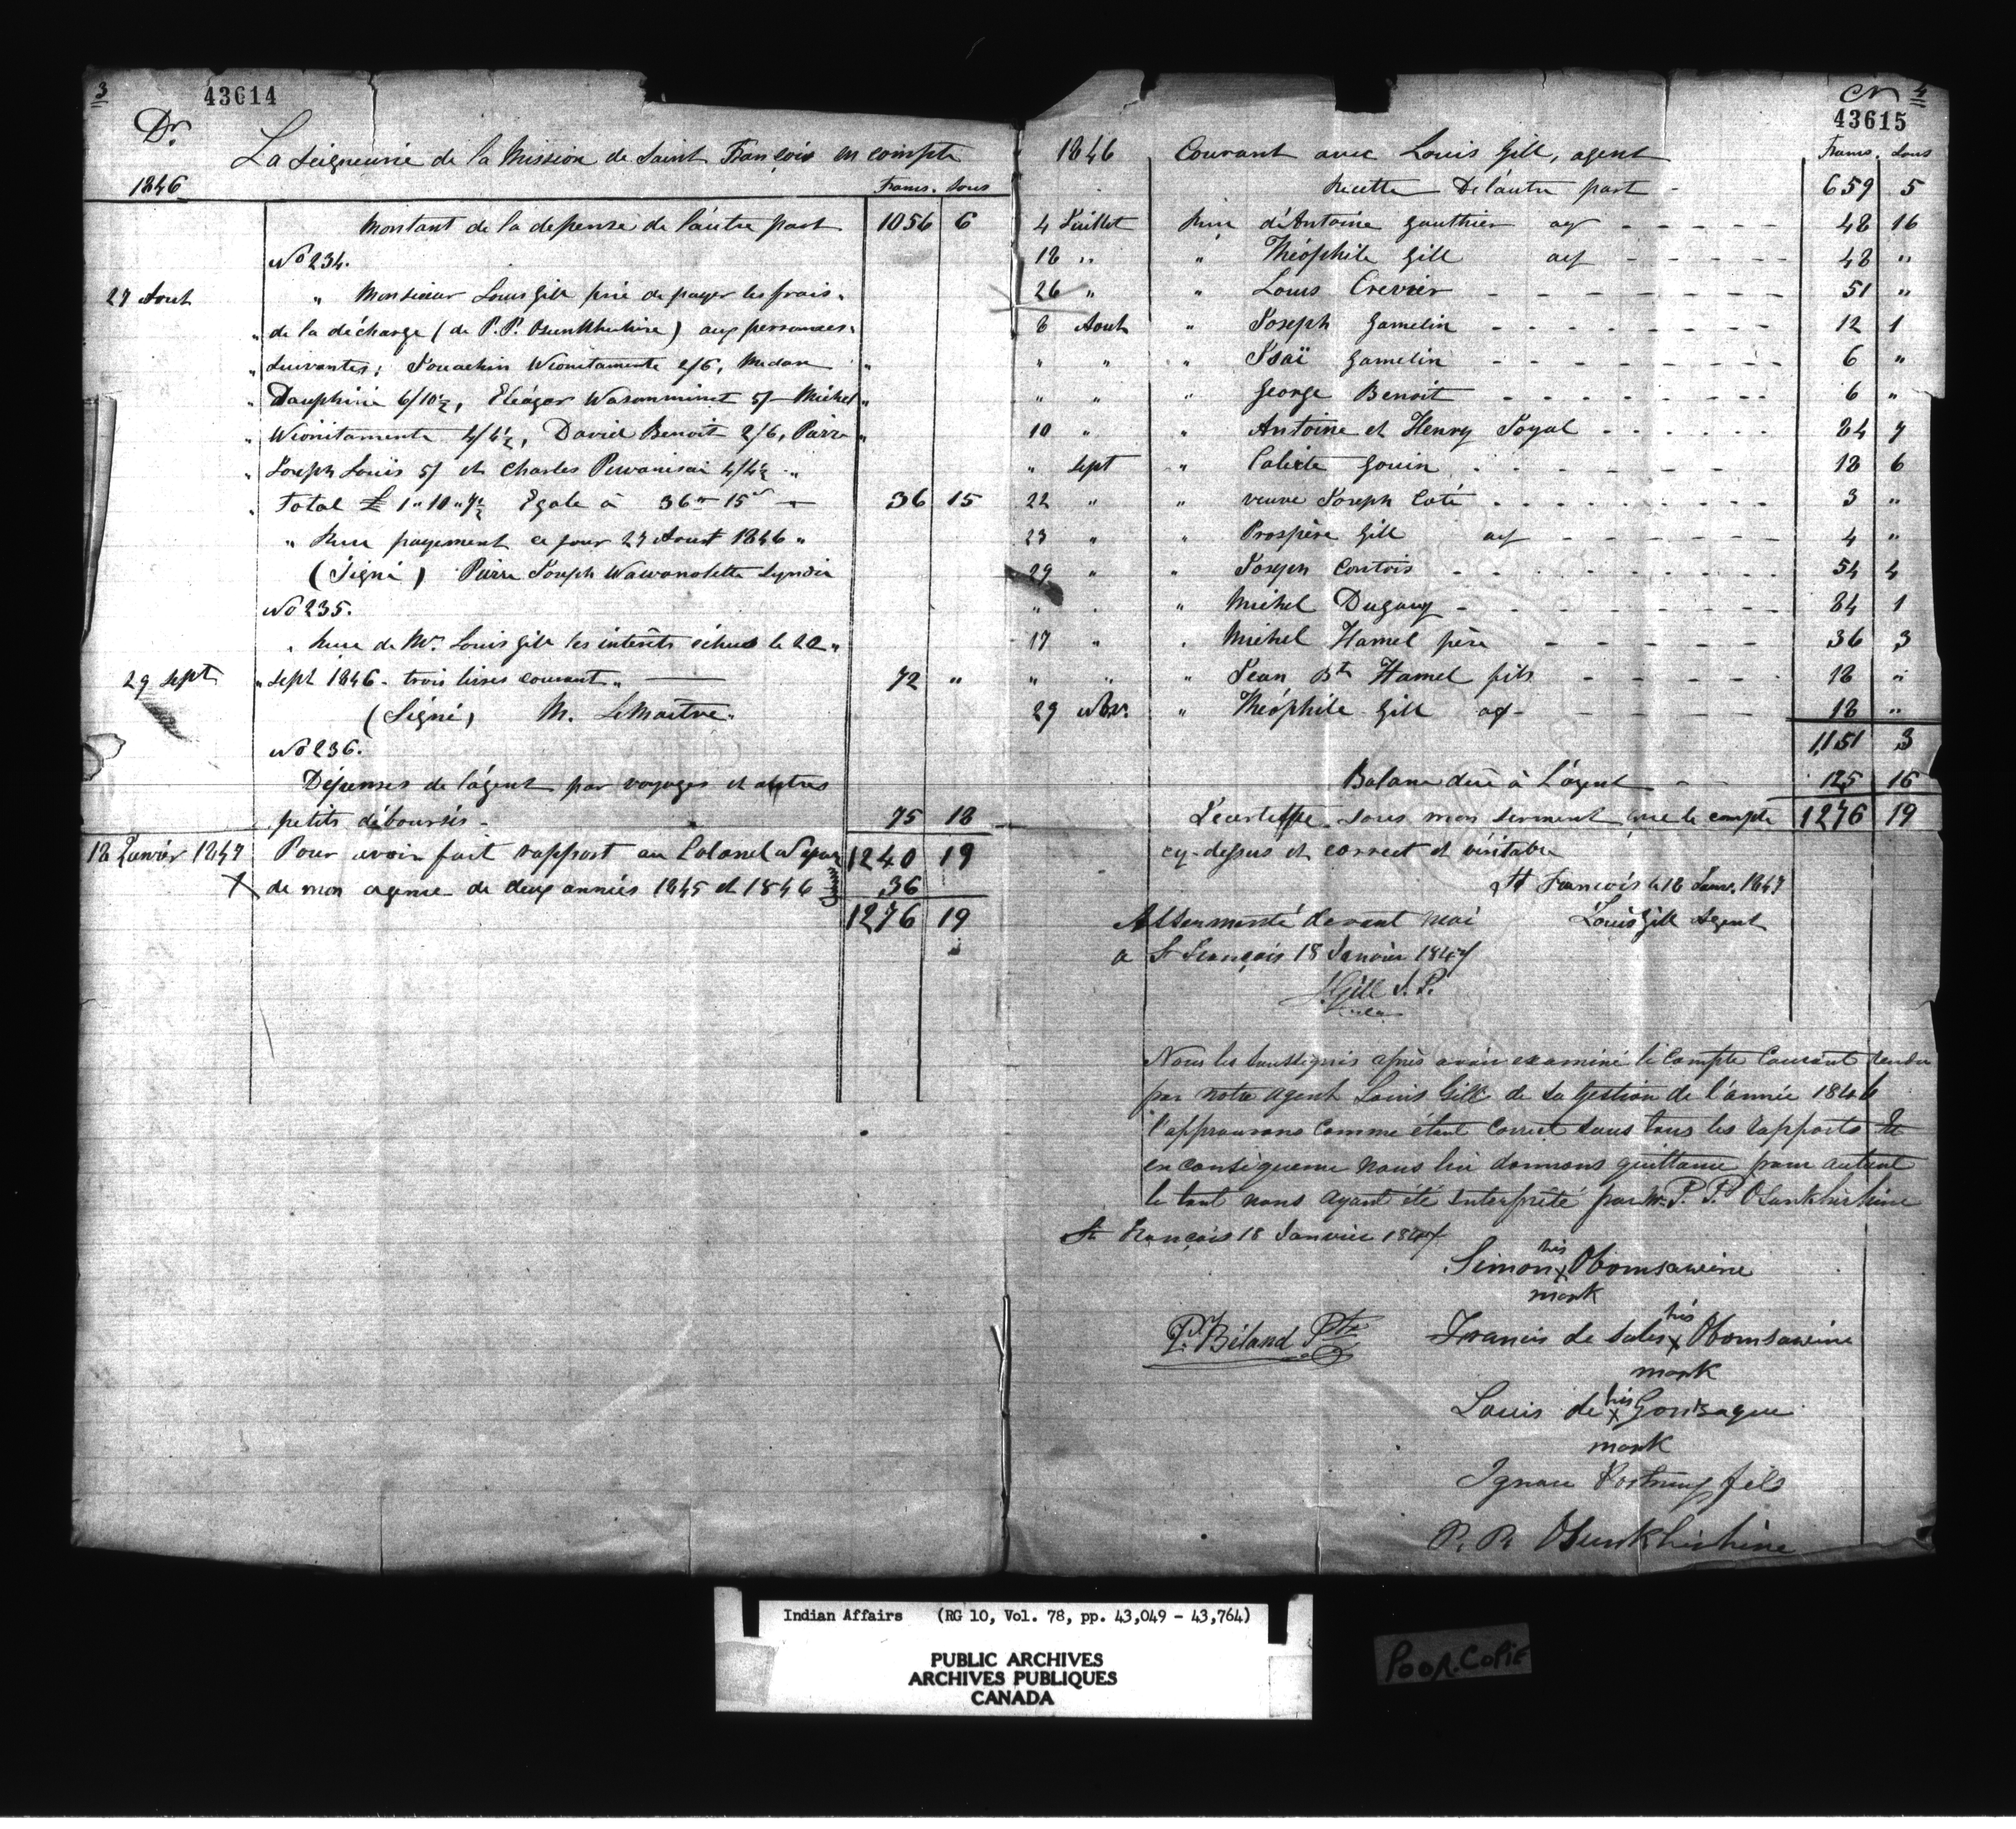 3
43614
Dr.
La Seigneurie de la Mission de Saint François en compte
1846
Francs. Sous
Montant de la depense de l'autre part 1056 6
No 234.
27 Aout " Monsieur Louis Gill prié de payer les frais "
" de la décharge (de P. P. Osunkhirhine) aux personnes "
" Suivantes; Jouachin Wionitamente 2/6, Medam "
" Dauphine 6/10½, Eléazar Wasomminet 5/ Michel "
" Wionitamente 4/4½, David Benoit 2/6, Pierre "
" Joseph Louis 5/ et Charles Pewanisai 4/4½ "
" Total £ 1 " 10 " 7½ Egale à 36 15 36 15
" Recu payement ce jour 27 Aoust 1846 "
(Signé) Pierre Joseph Wawanolette Syndic
No 235.
" Recu de Mr. Louis Gill les intérêts échus le 22 "
29 Sept " Sept 1846 - trois livres courant " 72 "
(Signé) M. LeMaitre
No 236.
Dépenses de l'agent par voyages et autres
petits déboursés - 75 18
18 Janvier 1847 Pour avoir fait rapport au Colonel 1240 19
X de mon agence de deux années 1845 et 1846 36
1276 19
Cr 4
43615
1846 Courant avec Louis Gill, agent Francs. Sous
Recette De l'autre part - 659 5
4 Juillet Recu d'Antoine Gauthier 48 16
18 " " Théophile Gill 48 "
26 " " Louis Crevier 51 "
8 Aout " Joseph Gamelin 12 1
" " " Isaï Gamelin 6 "
" " " George Benoit 6 "
10 " " Antoine et Henry Joyal 84 7
" Sept " Calixte Gouin 18 6
22 " " veuve Joseph Coté 3 "
23 " " Prospère Gill 4 "
29 " " Joseph Contois 54 4
" " Michel Duguay 84 1
17 " " Michel Hamel père 36 3
" " " Jean Bte Hamel fils 18 "
29 Nov. " Théophile Gill 18 "
1151 3
Balance due à L'agent 125 16
Je certiffie sous mon serment que le compte 1276 19
cy-dessus et correct et véritable
St François le 18 Janv. 1847
Assermenté devant moi Louis Gill Agent
a St François 18 Janvier 1847
Gill J. P.
Nous les Soussignés après avoir examiné le Compte Courant rendu
par notre agent Louis Gill de sa Gestion de l'année 1846
l'approuvons Comme étant Correct sous tous les rapports Et
en conséquence nous lui donnons quittance pour autant
le tout nous ayant été interprêté par Mr P. P. Osunkhirhine
St François 18 Janvier 1847
his
Simon X Obomsawine
mark
his
P. Béland Ptre Francis de Sales X Obomsawine
mark
his
Louis de X Gonzague
mark
Ignace Portneuf fils
P. P. Osunkhirhine
Indian Affairs (RG 10, Vol. 78, pp. 43,049 - 43,764)
PUBLIC ARCHIVES
ARCHIVES PUBLIQUES
CANADA
POOR. COPIE